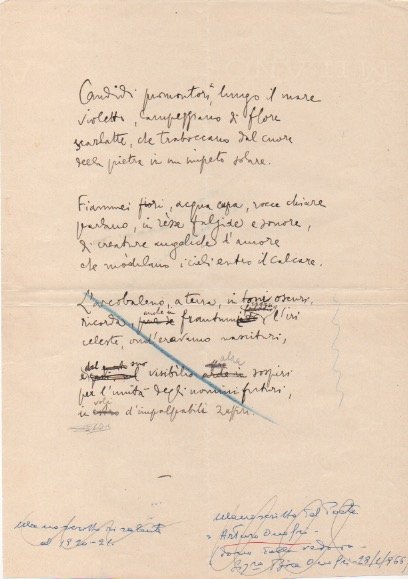 Candidi promontorî, lungo il mare
violetto, campeggiano di flore
scarlatte, che traboccano dal cuore
della pietra in un impeto solare.
Fiammei fiori, acqua cupa, rocce chiare
parlano, in rèsse fulgide e sonore,
di creature angeliche d'amore
che mòdulano i cieli entro il calcare.
L'arcobaleno, a terra, in toni oscuri,
anche in
ricorda, frantumi, l'iri
celeste, ond'eravamo nascituri,
del suo
visibilio arde in sospiri
per l'unità degli uomini futuri,
volo
in d'impalpabili zaffiri.
Manoscritto
al 1920-21.
Manoscritto del Poeta
Arturo Onofri
dono della vedova
Sig.ra Bice Onofri - 28/2/966